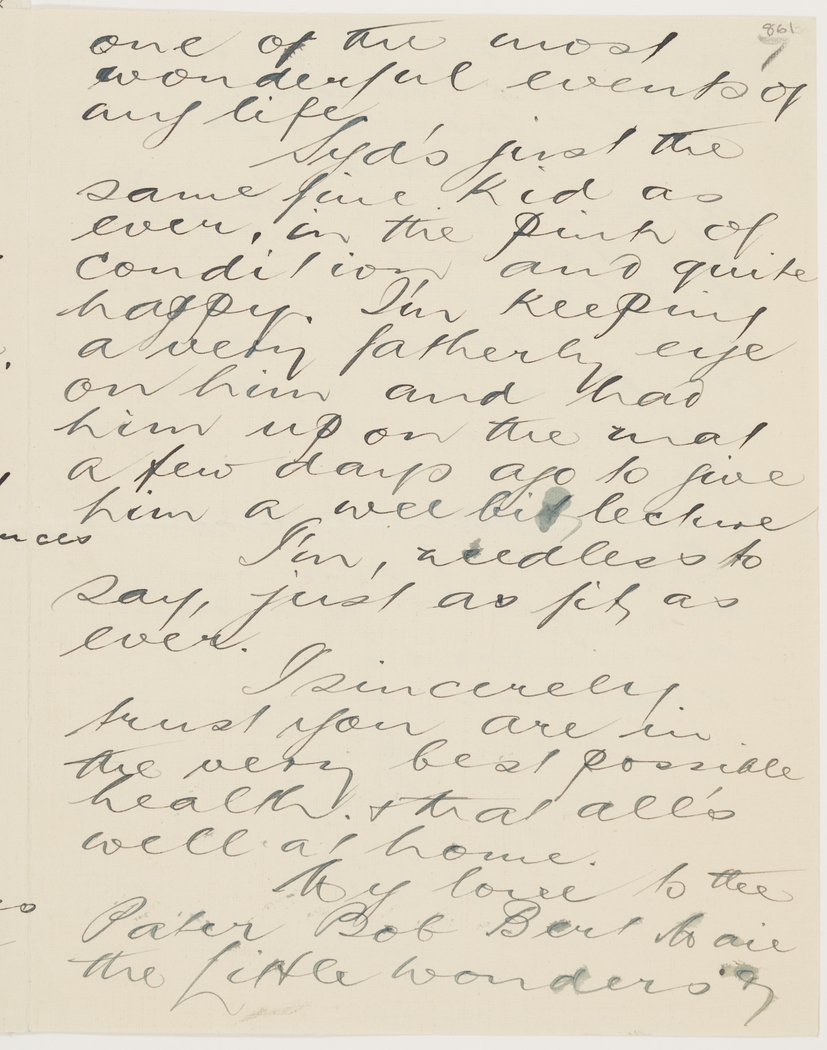 861
7
one of the most
wonderful events of
any life
Syd's just the
same fine kid as
ever, in the pink of
condition and quite
happy. I'm keeping
a very fatherly eye
on him and had
him up on the mat
a few days ago to give
him a wee bit lecture
I'm, needless to
say, just as fit as
ever.
I sincerely
trust you are in
the very best possible
health. & that all's
well at home.
My love to the
Pater Bob Bert &
the Little wonders